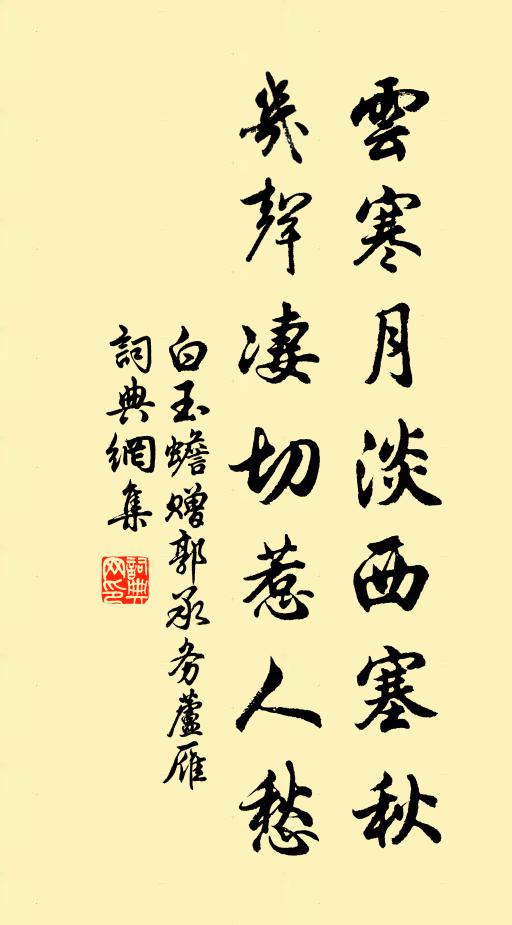 雲寒月淡西塞秋
幾聲凄切惹人愁
白玉蟾贈郭承务蘆雁
詞典網集
詞典网印